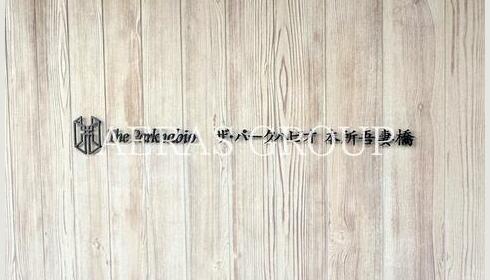 The Parkhabio ザ・パークハビオ 本所吾妻橋
AERAS GROUP